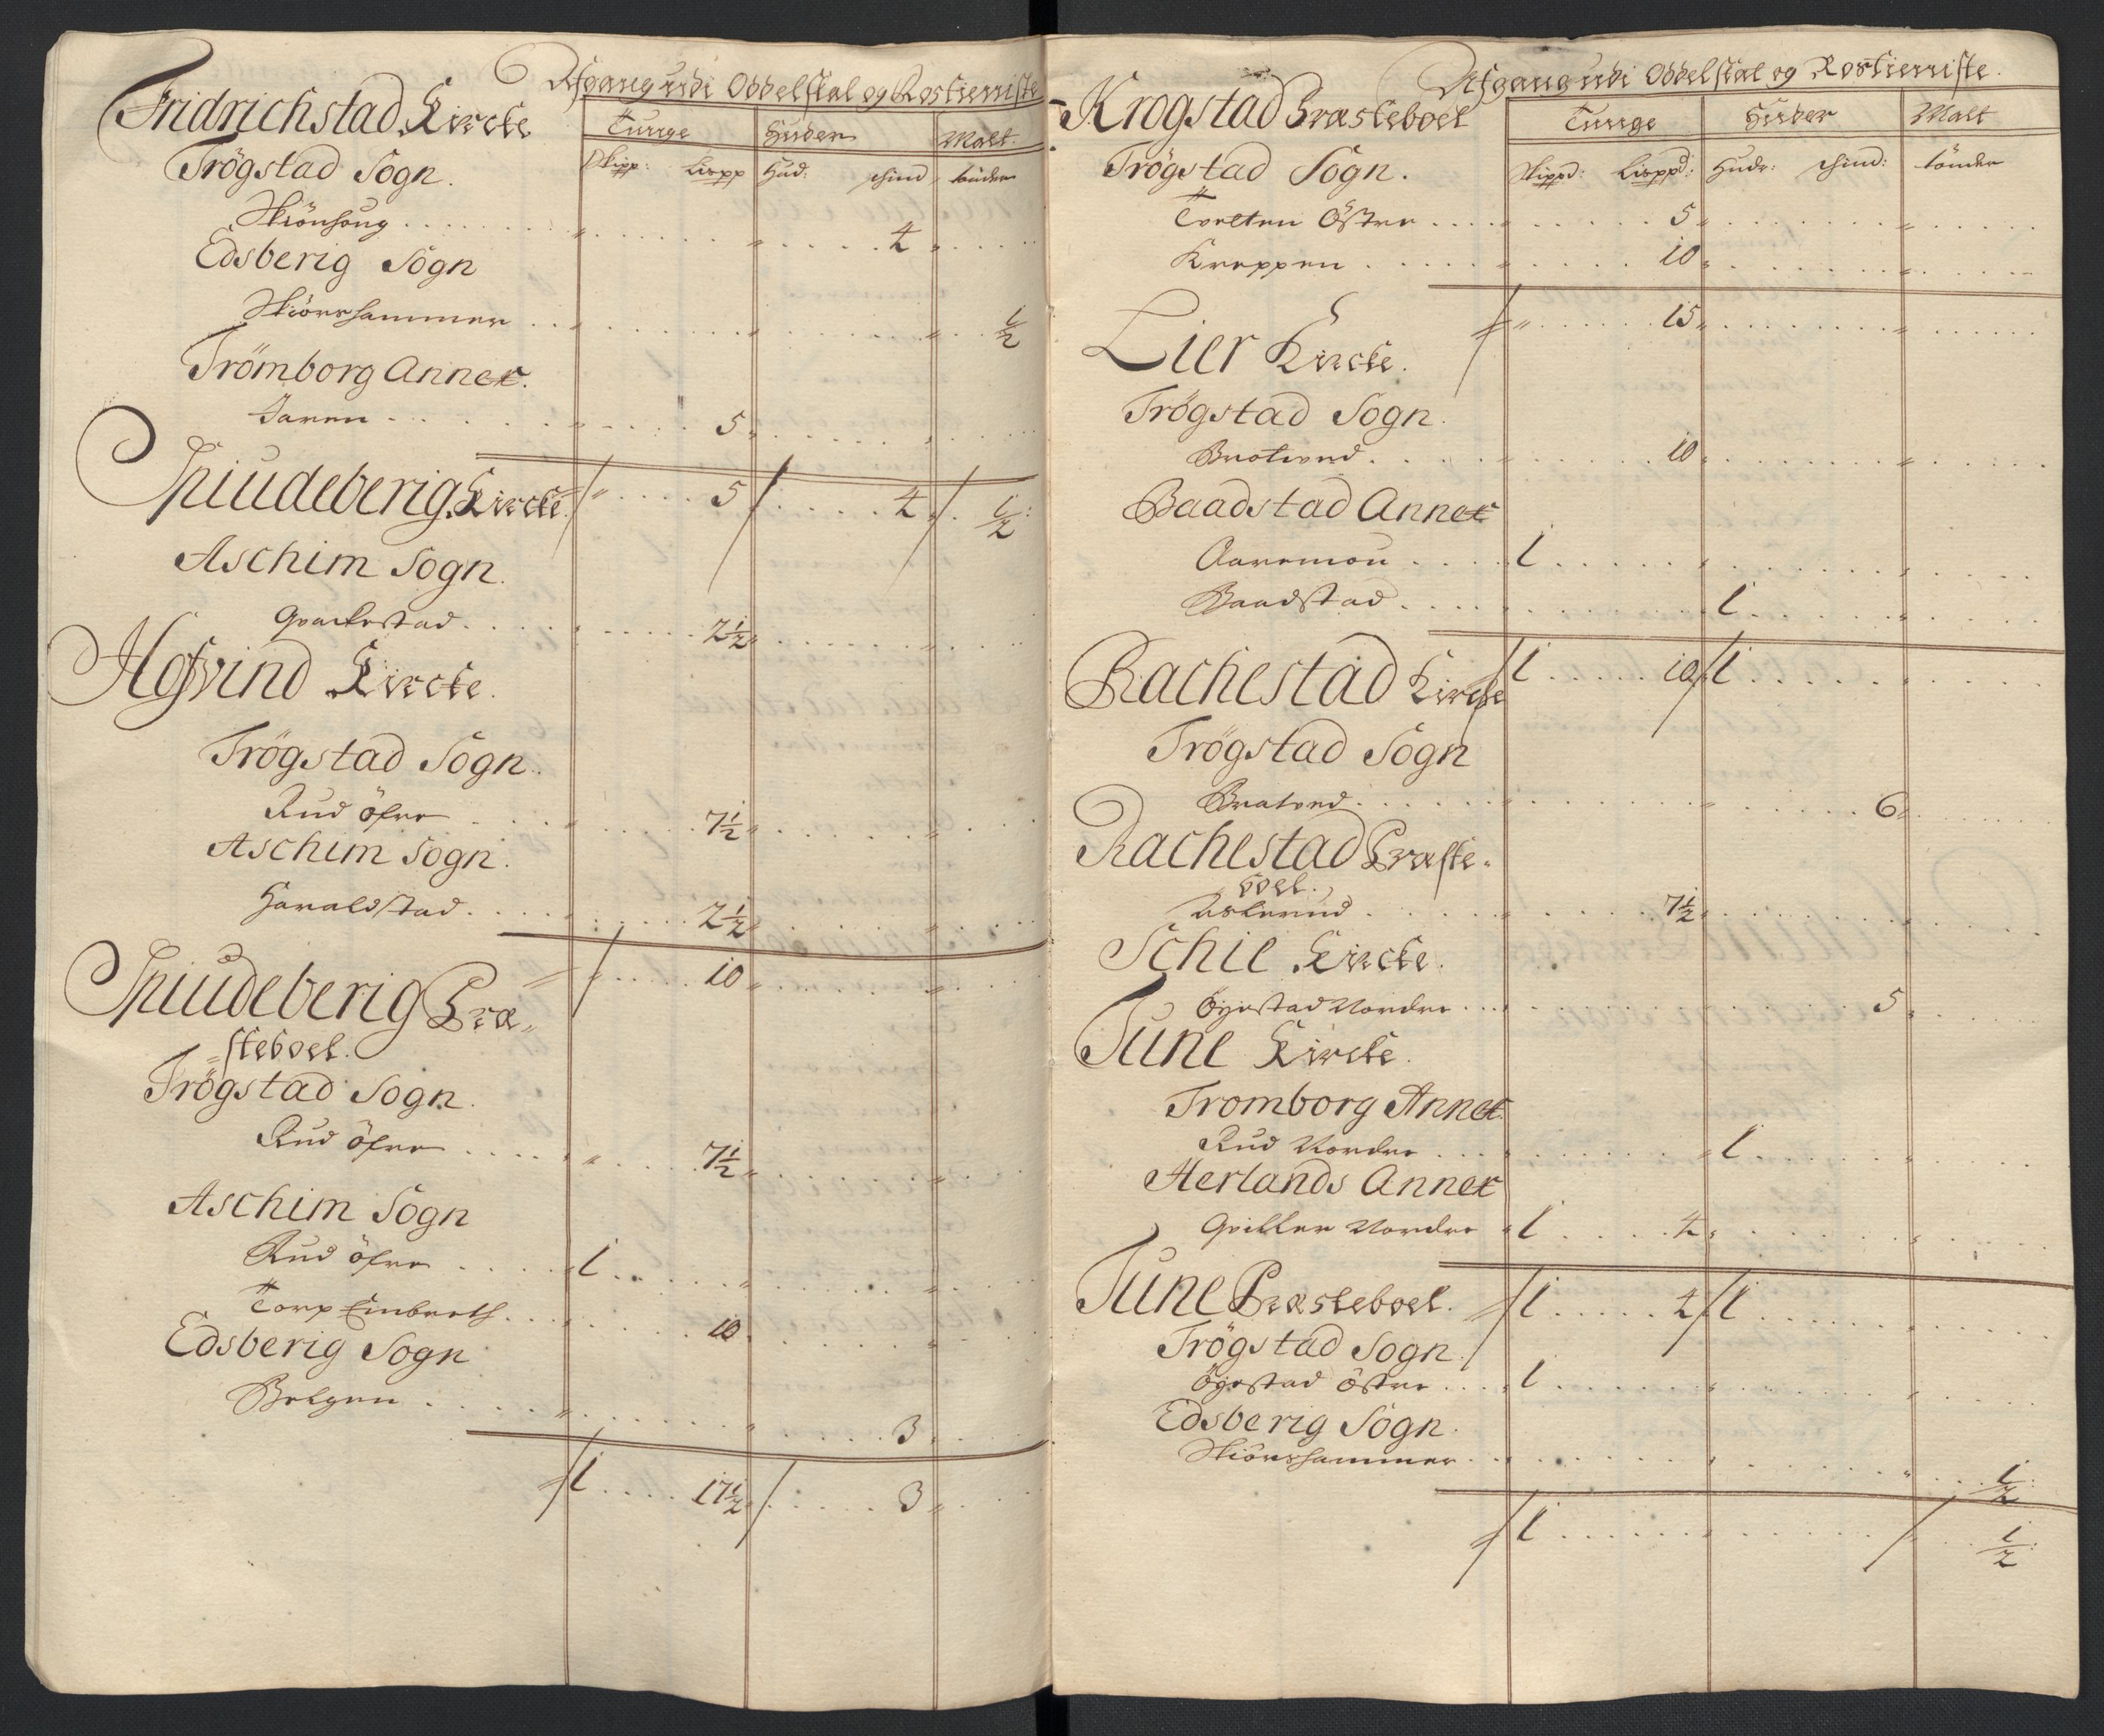 Afgang udi Oddelskat og Rostieniste
Fridrichstad Kircke
Tunge Huder Malt.
Skipp: Lispp Hud: skind tönder
Trögstad Sogn.
Skiönhoug . . . . 4
Edsberig Sogn
Skiørshammer . . . . 1/2
Trömborg Annex.
Jaren . . . . 5
Spiudeberig Kircke . . . . 5 . . . . 4 . . 1/2
Aschim Sogn.
Qvackestad . . . . 2 1/2
Hofvind Kircke.
Trögstad Sogn.
Rud öfre . . . . 7 1/2
Aschim Sogn.
Haraldstad . . . . 2 1/2
10
Spiudeberig Præ-
steboel.
Trögstad Sogn.
Rud öfre . . . . 7 1/2
Aschim Sogn
Rud öfre . . . . 1
Torp Embreth . . . . 10
Edsberig Sogn
Belgen . . . . 3
1 . . . . 17 1/2 . . . . 3
Afgang udi Oddelskat og Rostieniste.
Krogstad Præsteboel
Tunge Huder Malt
Skippd: Lisppd: Hudr: skind: tönder
Trögstad Sogn.
Tvelten Östre . . . . 5
Kreppen . . . . 10
15
Lier Kircke.
Trögstad Sogn.
Bratved . . . . 10
Baadstad Annex
Aaremou . . . . 1
Baadstad . . . . 1
1 . . . . 10 1
Rachestad Kircke
Trögstad Sogn
Bratved . . . . 6
Rachestad Præste-
boel.
Askerud . . . . 7 1/2
Schie Kircke.
Öyestad Nordre . . . . 5
Tune Kircke.
Tromborg Annex
Rud Nordre . . . . 1
Herlands Annex
Qviller Nordre 1 . . . . 4
1 . . . . 4 1
Tune Præsteboel.
Trögstad Sogn.
Öyestad östre . . . . 1
Edsberig Sogn.
Skiörshammer . . . . 1/2
1 . . . . 1/2